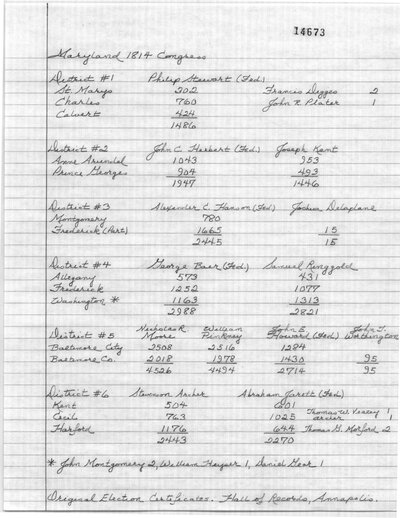 14673
Maryland 1814 Congress
District #1 Philip Stewart (Fed)
St. Marys 302 Francis Digges 2
Charles 760 John R. Plater 1
Calvert 424
1486
District #2 John C. Herbert (Fed) Joseph Kent
Anne Arundel 1043 953
Prince Georges 904 493
1947 1446
District #3 Alexander C. Hanson (Fed) Joshua Delaplane
Montgomery 780
Frederick (Part) 1665 15
2445 15
District #4 George Baer (Fed) Samuel Ringgold
Allegany 573 431
Frederick 1252 1077
Washington * 1163 1313
2988 2821
District #5 Nicholas R. Moore William Pinkney John E. Howard (Fed) John T. Worthington
Baltimore City 2508 2516 1284
Baltimore Co. 2018 1978 1430 95
4526 4494 2714 95
District #6 Stevenson Archer Abraham Jarett (Fed)
Kent 504 601
Cecil 763 1025 Thomas W. Veazey 1
Archer 1
Harford 1176 644 Thomas G. 2
2443 2270
* John Montgomery 2, William 1, Daniel 1
Original Election Certificates. Hall of Records, Annapolis.